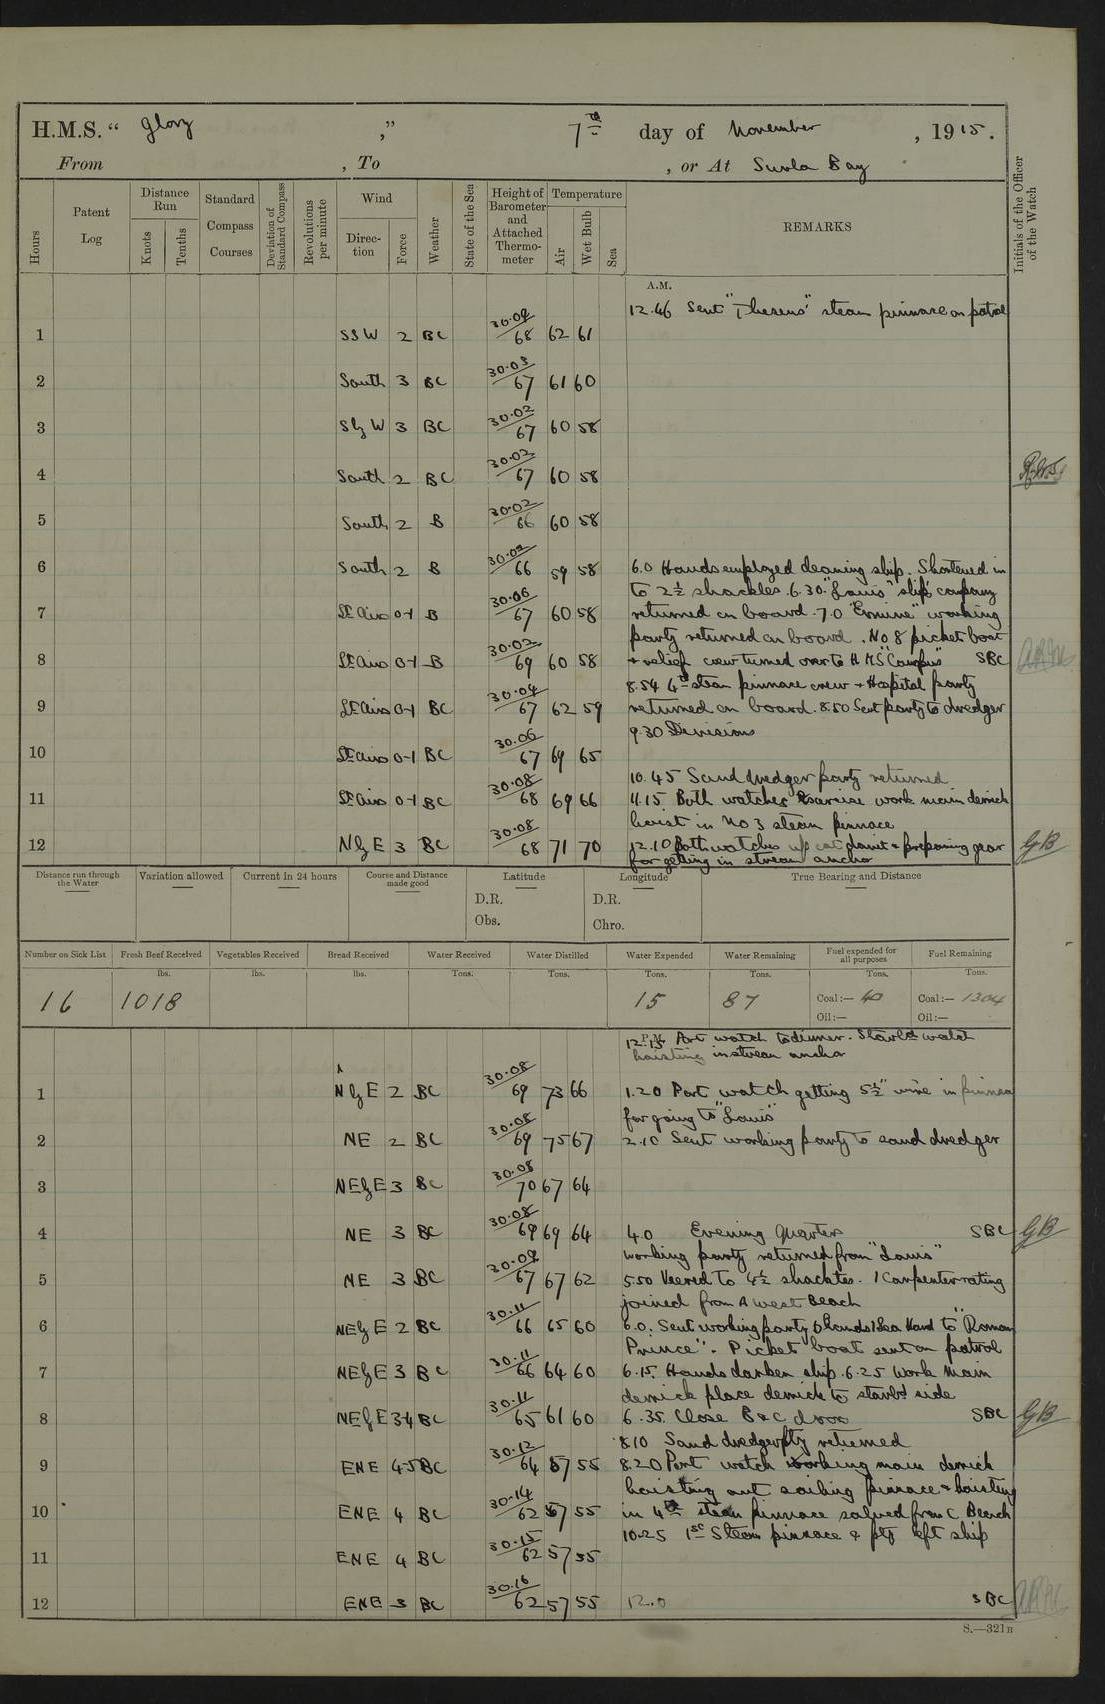 H.M.S. “ Glory ,” 7th day of November , 1915.
From , To , or At Suvla Bay
Hours
Patent Log
Distance Run
Knots
Tenths
Standard Compass Courses
Deviation of Standard Compass
Revolutions per minute
Wind
Direction
Force
Weather
State of the Sea
Height of Barometer and Attached Thermometer
Temperature
Air
Wet Bulb
Sea
REMARKS
Initials of the Officer of the Watch
A.M.
12.46 Sent "Theseus" steam pinnace on patrol
1 SSW 2 BC 30.04/68 62 61
2 South 3 BC 30.03/67 61 60
3 SbyW 3 BC 30.02/67 60 58
4 South 2 BC 30.02/67 60 58
5 South 2 B 30.02/66 60 58
6 South 2 B 66 59 58 6.0 Hands employed cleaning ship. Shortened in
to 2½ shackles. 6.30. "Louis" ship's company
7 Lt airs 0-1 B 30.06/67 60 58 returned on board. 7.0 "Ermine" working
party returned on board. No 8 picket boat
8 Lt airs 0-1 B 30.02/69 60 58 & relief crew turned over to HMS SBC
8.54 4th steam pinnace crew & Hospital party
9 Lt airs 0-1 BC 30.04/67 62 59 returned on board. 8.50 Sent party to dredger
9.30 Divisions
10 Lt airs 0-1 BC 30.06/67 69 65
10.45 Sand dredger party returned
11 Lt airs 0-1 BC 30.08/68 69 66 11.15 Both watches exercise work main derrick
hoist in No 3 steam pinnace
12 NbyE 3 BC 30.08/68 71 70 12.10 Both watches up cat davit & preparing gear GB
for getting in stream anchor
Distance run through the Water
Variation allowed
Current in 24 hours
Course and Distance made good
Latitude
Longitude
True Bearing and Distance
D.R. D.R.
Obs. Chro.
Number on Sick List
Fresh Beef Received
Vegetables Received
Bread Received
Water Received
Water Distilled
Water Expended
Water Remaining
Fuel expended for all purposes
Fuel Remaining
lbs. lbs. lbs. Tons. Tons. Tons. Tons. Tons. Tons.
16 1018 15 87 Coal:— 40 Coal:— 1304
Oil:— Oil:—
P.M.
12.15 Port watch to dinner. Starbd watch
hoisting in stream anchor
1 NbyE 2 BC 30.08/69 73 66 1.20 Port watch getting 5½" wire in pinnace
for going to "Louis"
2 NE 2 BC 30.08/69 75 67 2.10 Sent working party to sand dredger
3 NEbyE 3 BC 30.08/70 67 64
4 NE 3 BC 30.08/69 69 64 4.0 Evening Quarters SBC GB
working party returned from "Louis"
5 NE 3 BC 30.09/67 67 62 5.50 Veered to 4½ shackles. 1 Carpenter rating
joined from A West Beach
6 NEbyE 2 BC 30.11/66 65 60 6.0. Sent working party 6 hands 1 Sea Hand to "Roman
Prince". Picket boat sent on patrol
7 NEbyE 3 BC 30.11/66 64 60 6.15. Hands darken ship. 6.25 Work main
derrick place derrick to starbd side
8 NEbyE 3-4 BC 30.11/65 61 60 6.35. Close B & C doors SBC GB
8.10 Sand dredger pty returned
9 ENE 4-5 BC 30.12/64 57 55 8.20 Port watch working main derrick
hoisting out sailing pinnace & hoisting
10 ENE 4 BC 30.14/62 57 55 in 4th steam pinnace salved from C Beach
10.25 1st Steam pinnace & pty left ship
11 ENE 4 BC 30.15/62 57 55
12 ENE 3 BC 30.16/62 57 55 12.0 SBC
S.—321B